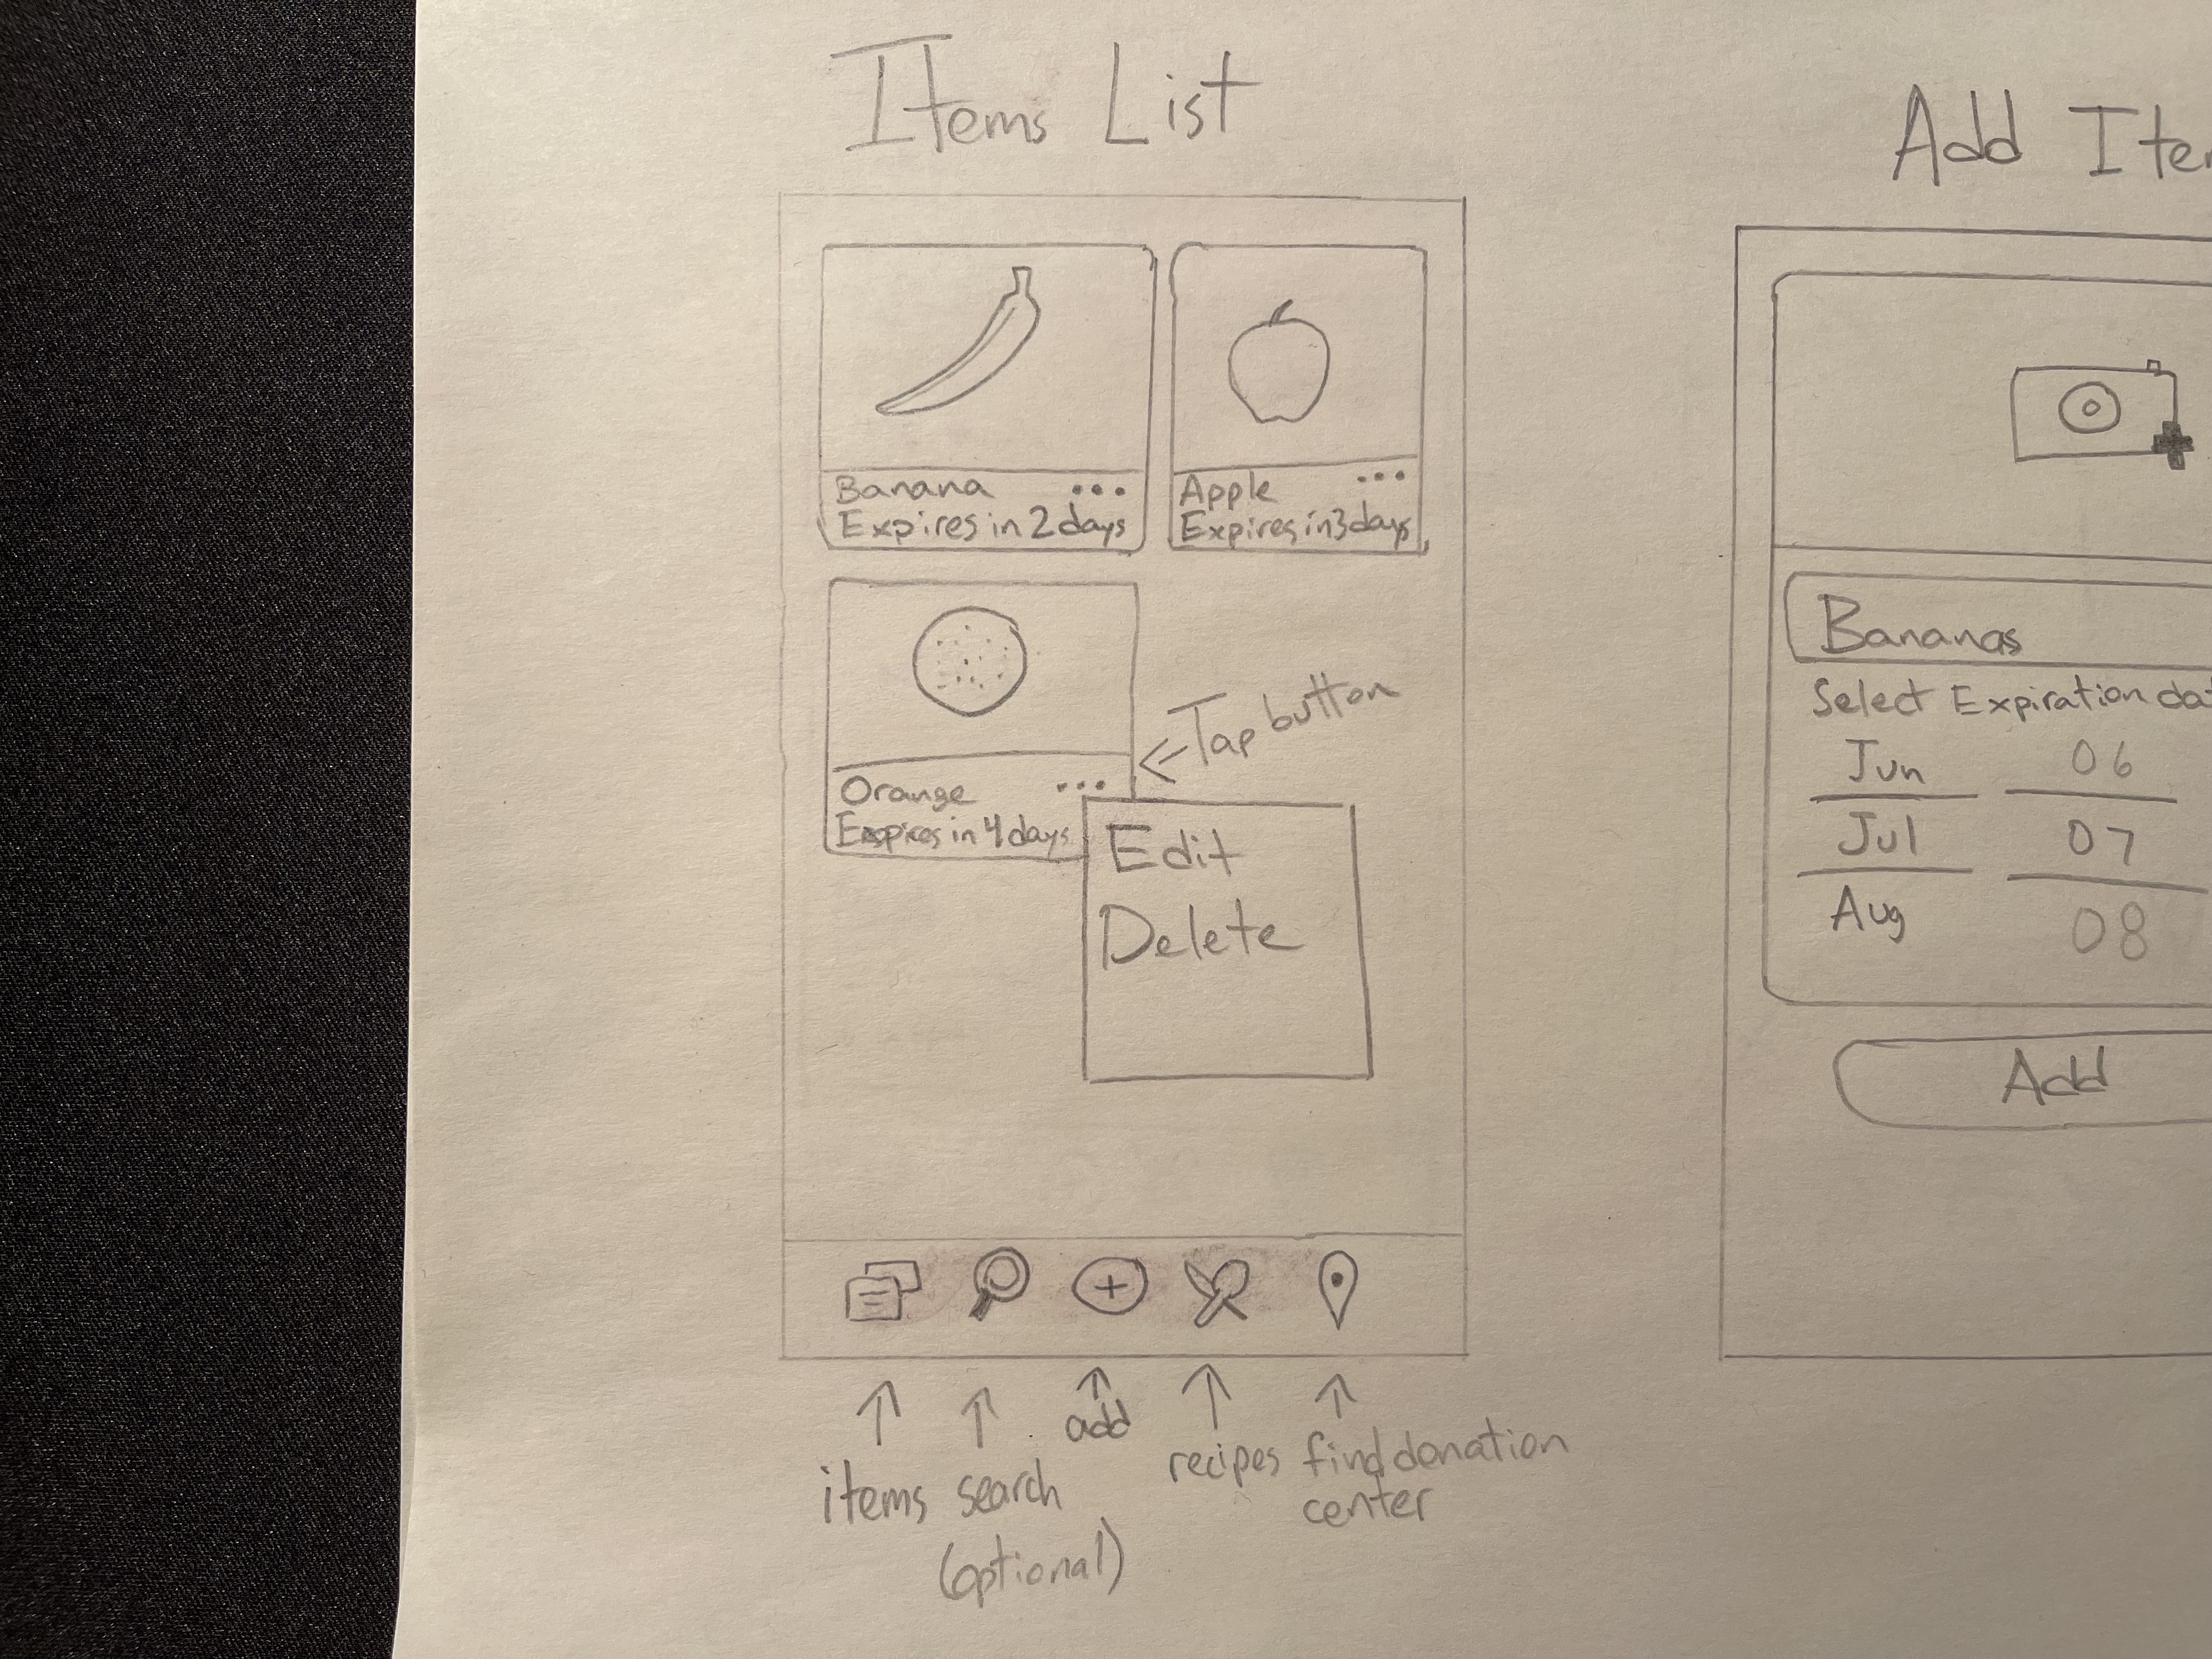 Items List
Banana ...
Expires in 2 days
Apple ...
Expires in 3 days
Tap button
Orange ...
Expires in 4 days
Edit
Delete
items
search
(optional)
add
recipes
find donation
center
Add Iter
Bananas
Select Expiration dat
Jun 06
Jul 07
Aug 08
Add